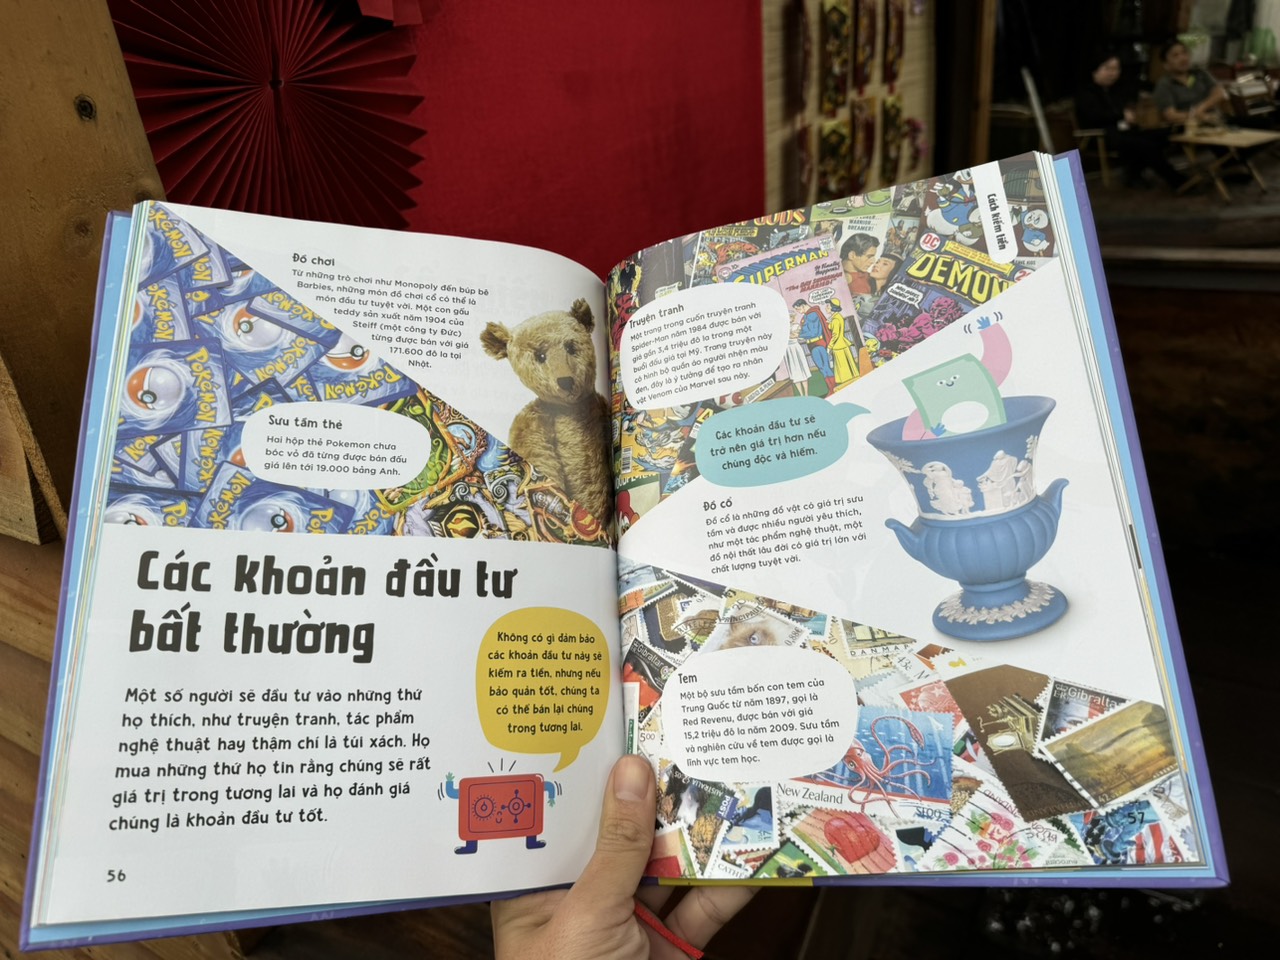 Đồ chơi
Từ những trò chơi như Monopoly đến búp bê
Barbies, những món đồ chơi cổ có thể là
món đầu tư tuyệt vời. Một con gấu
teddy sản xuất năm 1904 của
Steiff (một công ty Đức)
từng được bán với giá
171.600 đô la tại
Nhật.
Sưu tầm thẻ
Hai hộp thẻ Pokemon chưa
bóc vỏ đã từng được bán đấu
giá lên tới 19.000 bảng Anh.
POKéMON
Các khoản đầu tư
bất thường
Một số người sẽ đầu tư vào những thứ
họ thích, như truyện tranh, tác phẩm
nghệ thuật hay thậm chí là túi xách. Họ
mua những thứ họ tin rằng chúng sẽ rất
giá trị trong tương lai và họ đánh giá
chúng là khoản đầu tư tốt.
Không có gì đảm bảo
các khoản đầu tư này sẽ
kiếm ra tiền, nhưng nếu
bảo quản tốt, chúng ta
có thể bán lại chúng
trong tương lai.
56
Cách kiếm tiền
SUPERMAN
DC
DEMON
Truyện tranh
Một trang trong cuốn truyện tranh
Spider-Man năm 1984 được bán với
giá gần 3,4 triệu đô la trong một
buổi đấu giá tại Mỹ. Trang truyện này
có hình bộ quần áo người nhện màu
đen, đây là ý tưởng để tạo ra nhân
vật Venom của Marvel sau này.
Các khoản đầu tư sẽ
trở nên giá trị hơn nếu
chúng độc và hiếm.
Đồ cổ
Đồ cổ là những đồ vật có giá trị sưu
tầm và được nhiều người yêu thích,
như một tác phẩm nghệ thuật, một
đồ nội thất lâu đời có giá trị lớn với
chất lượng tuyệt vời.
Tem
Một bộ sưu tầm bốn con tem của
Trung Quốc từ năm 1897, gọi là
Red Revenu, được bán với giá
15,2 triệu đô la năm 2009. Sưu tầm
và nghiên cứu về tem được gọi là
lĩnh vực tem học.
DANMARK
Gibraltar
Gibraltar
New Zealand
57